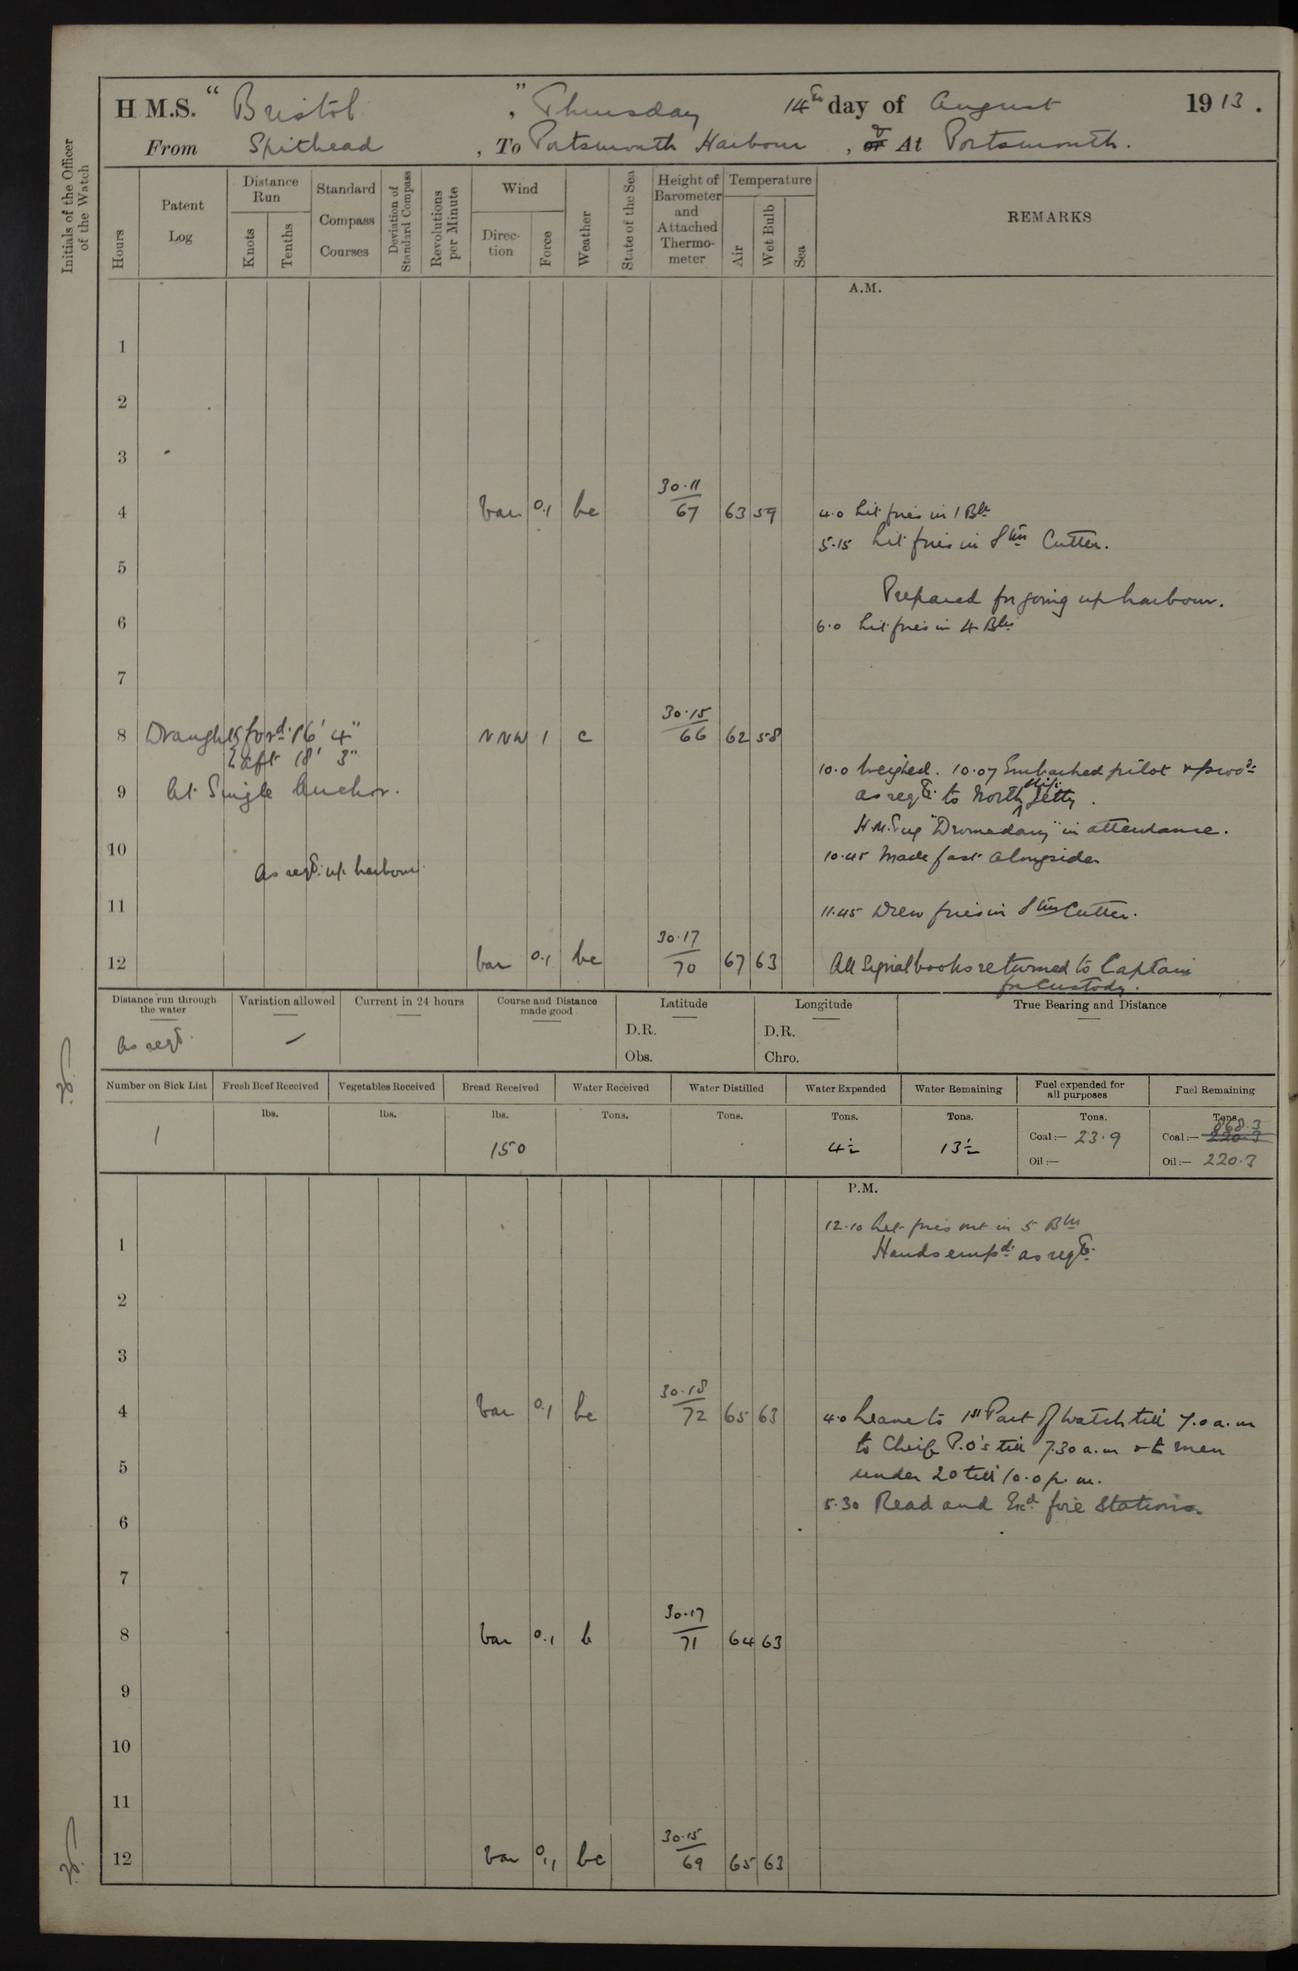 H.M.S. “ Bristol ” , Thursday 14th day of August 1913 .
From Spithead , To Portsmouth Harbour , or & At Portsmouth.
Initials of the Officer of the Watch
Hours
Patent Log
Distance Run
Knots
Tenths
Standard Compass Courses
Deviation of Standard Compass
Revolutions per Minute
Wind
Direction
Force
Weather
State of the Sea
Height of Barometer and Attached Thermometer
Temperature
Air
Wet Bulb
Sea
REMARKS
A.M.
1
2
3
4 Var 0.1 bc 30.11 67 63 59 4.0 Lit fires in 1 Blr
5.15 Lit fires in Stm Cutter.
5
Prepared for going up harbour.
6 6.0 Lit fires in 4 Blrs
7
8 Draught ford. 16' 4" NNW 1 c 30.15 66 62 58
aft 18' 3"
10.0 Weighed. 10.07 Embarked pilot & procd:
9 At Single Anchor. as reqd: to North Slip Jetty.
H.M. Tug "Dromedary" in attendance.
10 10.45 Made fast alongside
As reqd: up harbour.
11 11.45 Drew fires in Stm Cutter.
12 Var 0.1 bc 30.17 70 67 63 All Signal books returned to Captain
for Custody.
Distance run through the water
Variation allowed
Current in 24 hours
Course and Distance made good
Latitude
Longitude
True Bearing and Distance
As reqd — D.R. D.R.
Obs. Chro.
Number on Sick List
Fresh Beef Received
Vegetables Received
Bread Received
Water Received
Water Distilled
Water Expended
Water Remaining
Fuel expended for all purposes
Fuel Remaining
lbs. lbs. lbs. Tons. Tons. Tons. Tons. Tons. Tons.
868.3
1 150 4½ 13½ Coal:— 23.9 Coal:— 220.3
Oil:— Oil:— 220.3
P.M.
12.10 Let fires out in 5 Blrs
1 Hands empd: as reqd:
2
3
4 Var 0.1 bc 30.18 72 65 63 4.0 Leave to 1st Part of Watch till 7.0 a.m
to Cheif P.O's till 7.30 a.m & to men
5 under 20 till 10.0 p.m.
5.30 Read and Exd fire Stations.
6
7
8 Var 0.1 b 30.17 71 64 63
9
10
11
12 Var 0.1 bc 30.15 69 65 63